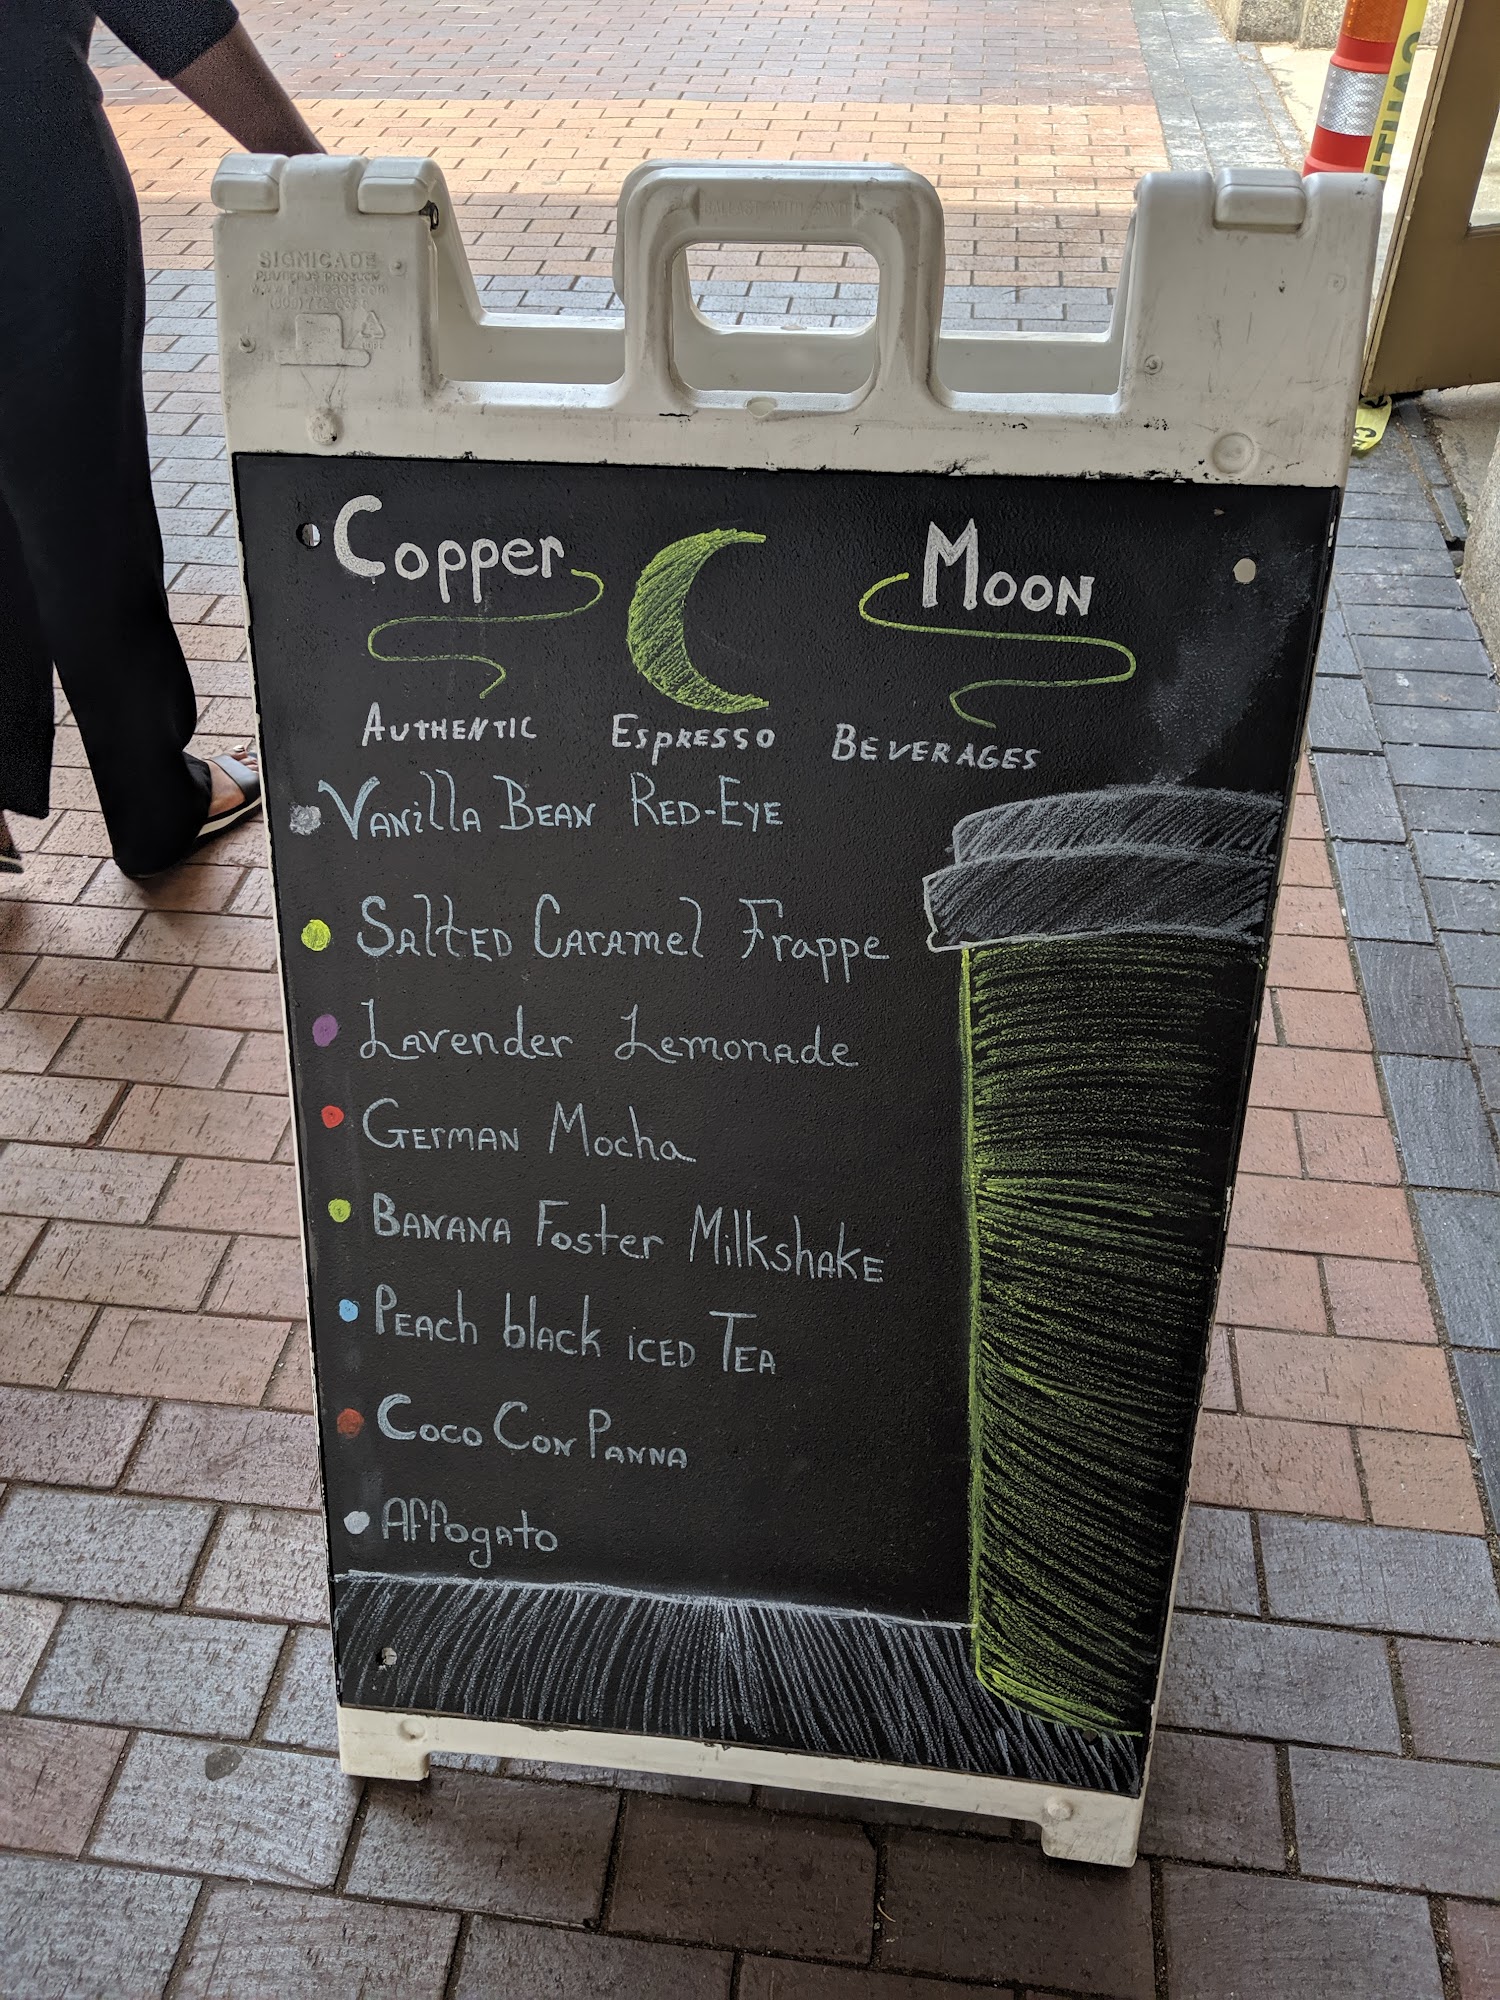 BALLAST WITH SAND
SIGNICADE
Copper Moon
Authentic Espresso Beverages
Vanilla Bean Red-Eye
Salted Caramel Frappe
Lavender Lemonade
German Mocha
Banana Foster Milkshake
Peach black iced Tea
Coco Con Panna
Affogato